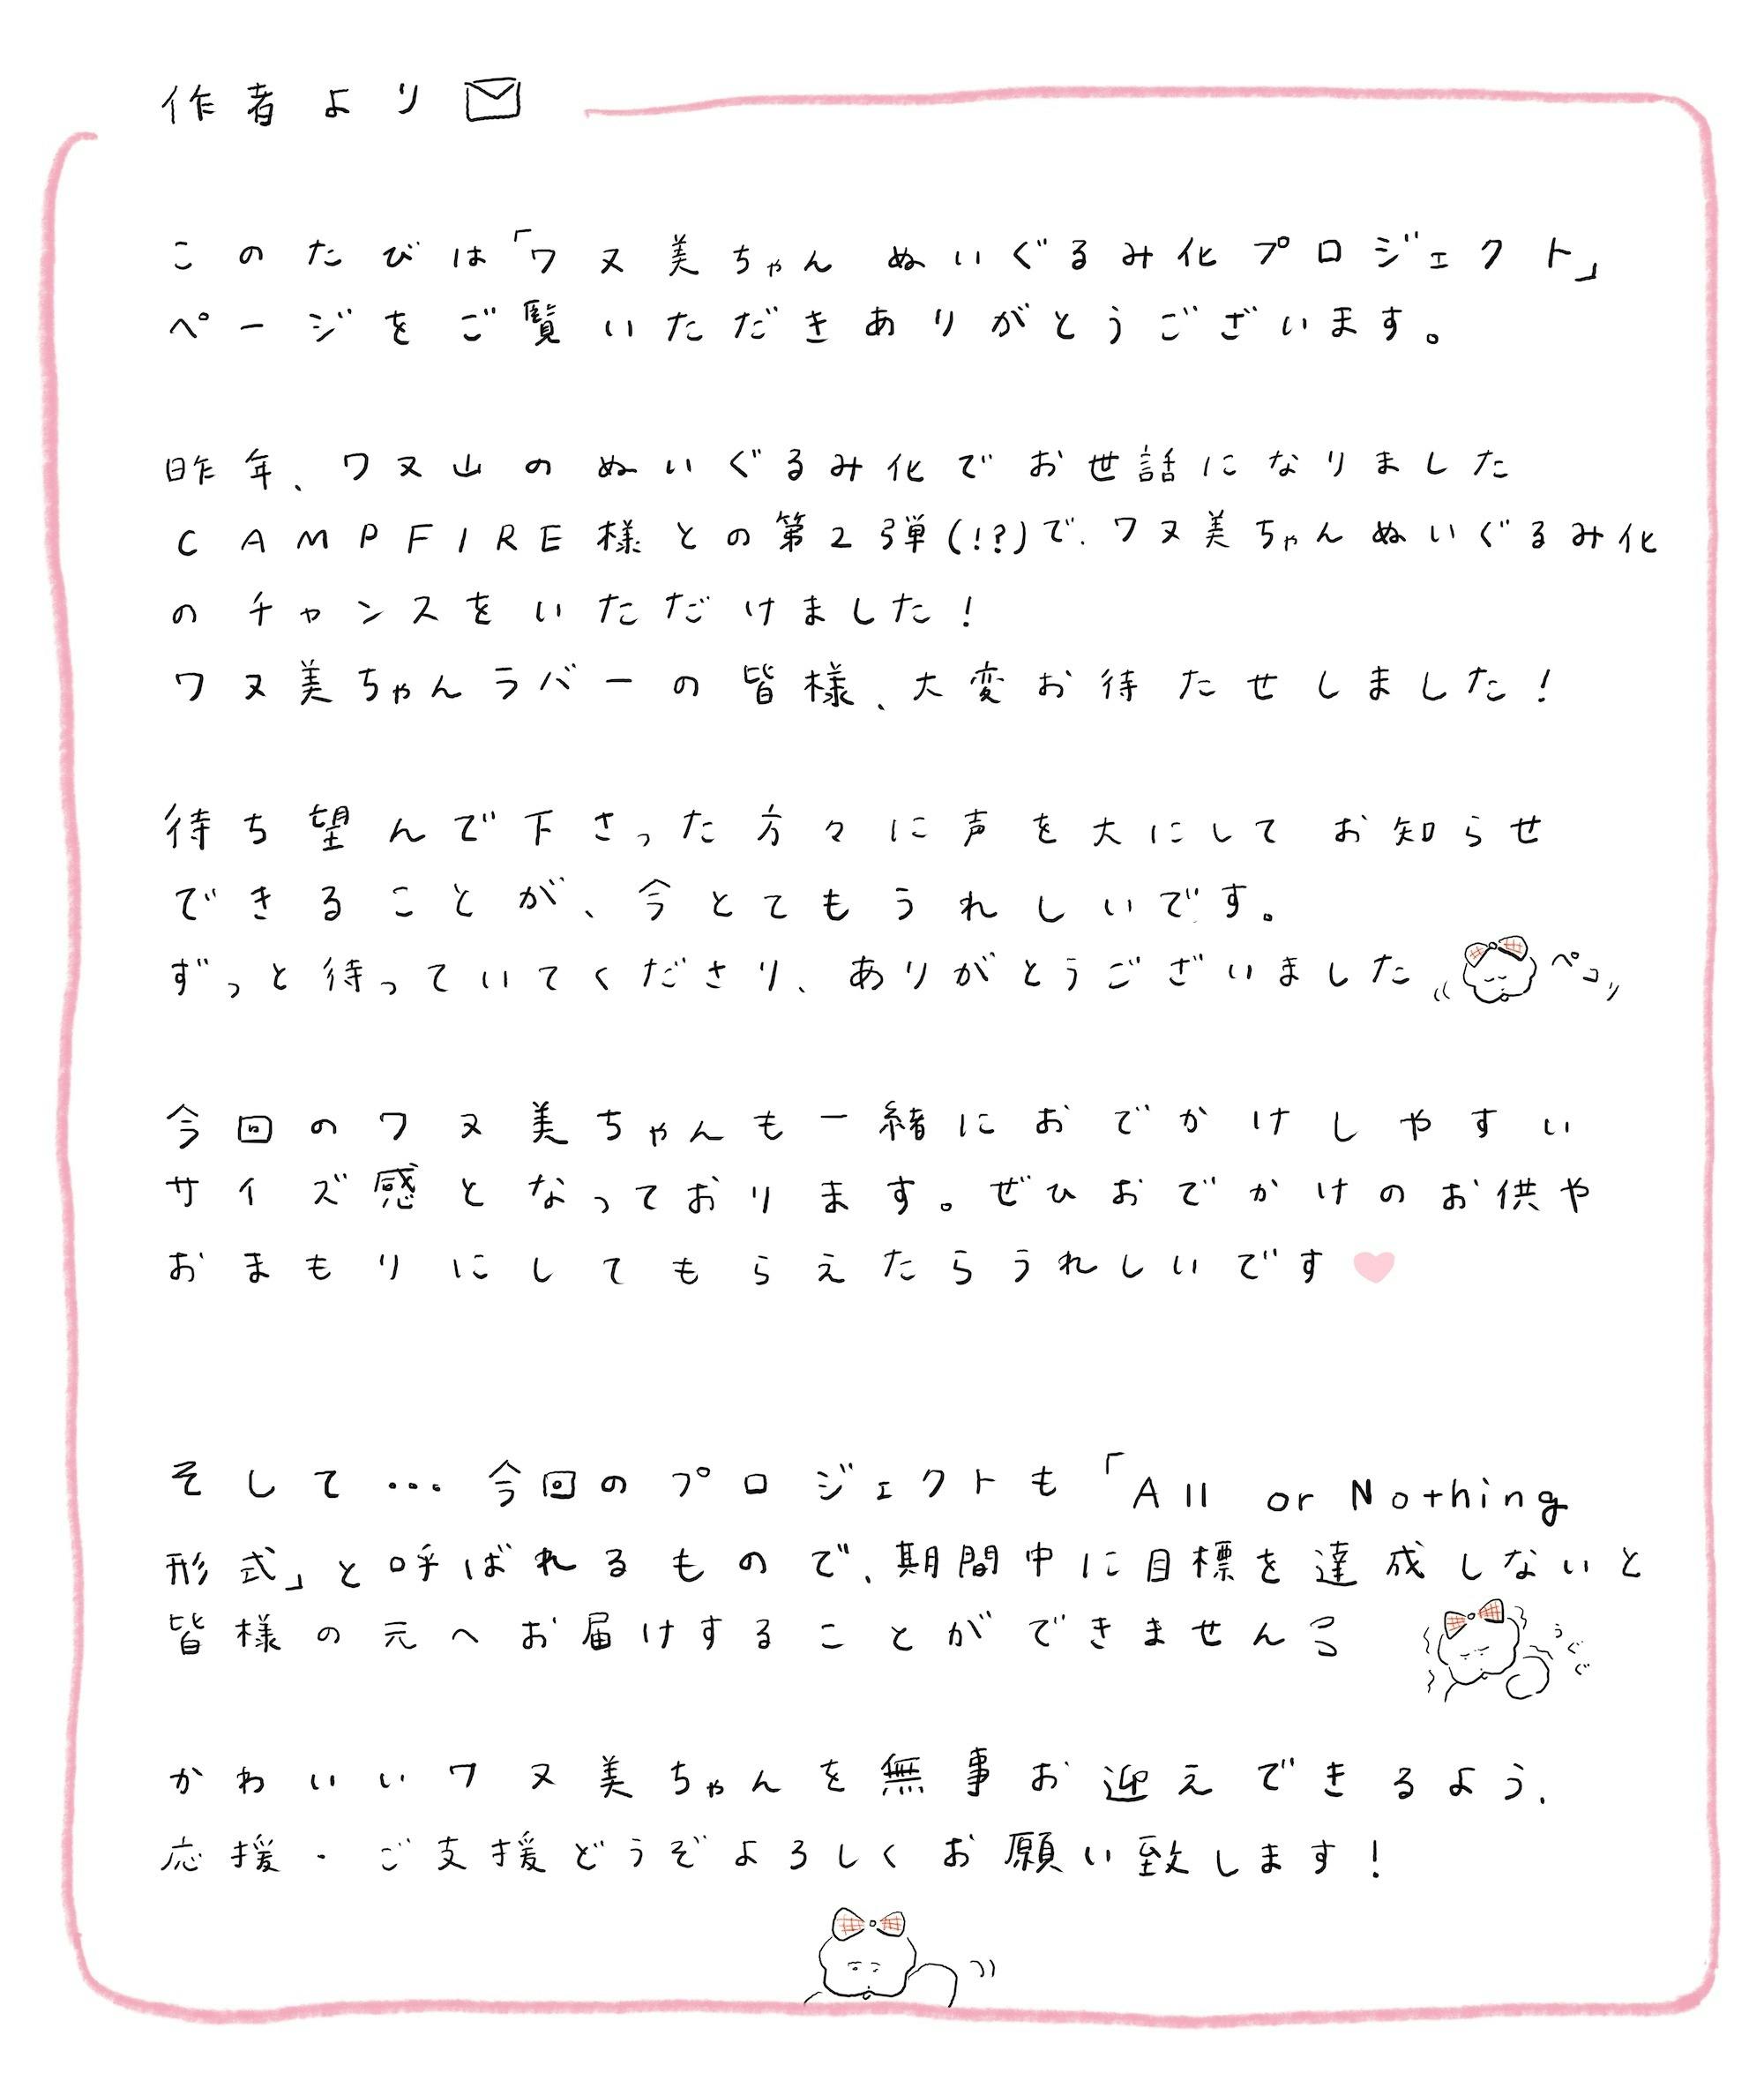 作者より
このたびは「ワヌ美ちゃん ぬいぐるみ化プロジェクト」
ページをご覧いただきありがとうございます。
昨年、ワヌ山のぬいぐるみ化でお世話になりました
CAMPFIRE様との第2弾(!?)で、ワヌ美ちゃんぬいぐるみ化
のチャンスをいただけました!
ワヌ美ちゃんラバーの皆様、大変お待たせしました!
待ち望んで下さった方々に声を大にして お知らせ
できることが、今とてもうれしいです。
ずっと待っていてくださり、ありがとうございました
ペコリ
今回のワヌ美ちゃんも一緒におでかけしやすい
サイズ感となっております。ぜひおでかけのお供や
おまもりにしてもらえたらうれしいです
そして…今回のプロジェクトも「All or Nothing
形式」と呼ばれるもので、期間中に目標を達成しないと
皆様の元へお届けすることができません
うぐぐ
かわいいワヌ美ちゃんを無事お迎えできるよう、
応援・ご支援どうぞよろしくお願い致します!